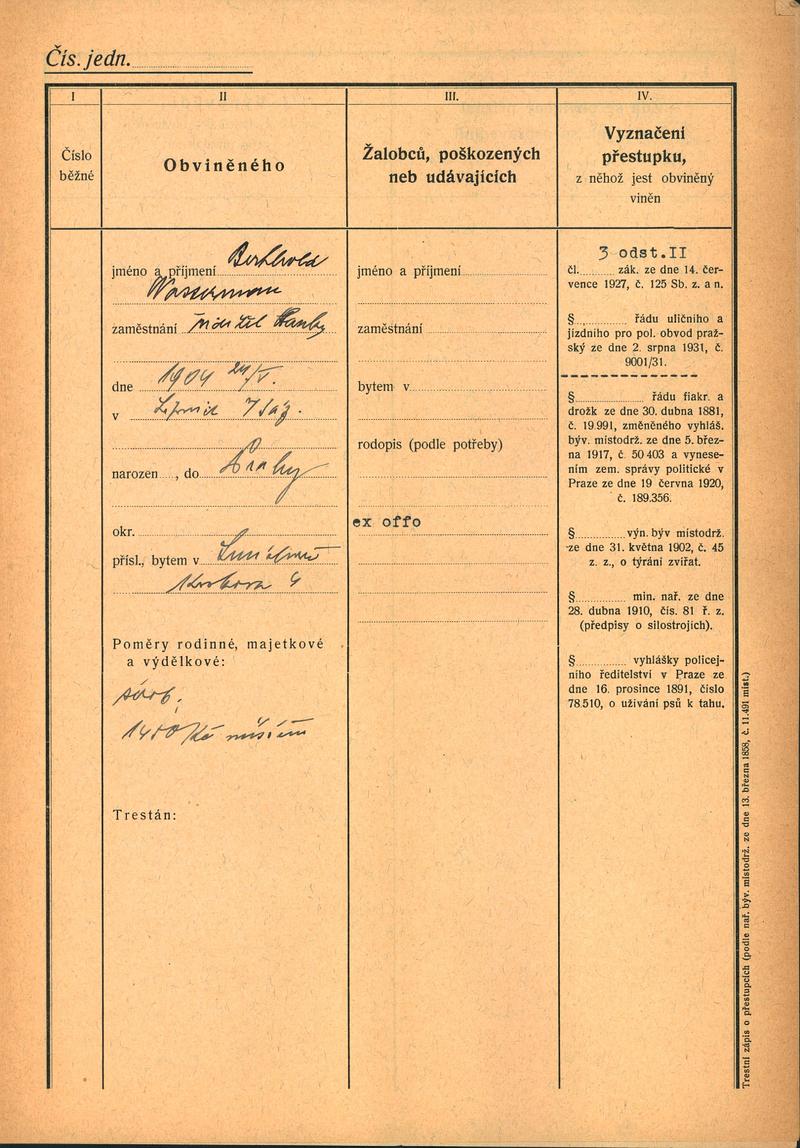 Čís. jedn.
I
II
III.
IV.
Číslo
běžné
Obviněného
Žalobců, poškozených
neb udávajících
Vyznačení
přestupku,
z něhož jest obviněný
viněn
jméno a příjmení Berthold
Wasserman
zaměstnání ředitel banky
dne 1904 24/V.
v
narozen , do Prahy
okr.
přísl., bytem v
Poměry rodinné, majetkové
a výdělkové:
1400 Kč
Trestán:
jméno a příjmení
zaměstnání
bytem v
rodopis (podle potřeby)
ex offo
3 odst.II
čl. zák. ze dne 14. čer-
vence 1927, č. 125 Sb. z. a n.
§ řádu uličního a
jízdního pro pol. obvod praž-
ský ze dne 2. srpna 1931, č.
9001/31.
§ řádu fiakr. a
drožk ze dne 30. dubna 1881,
č. 19.991, změněného vyhláš.
býv. místodrž. ze dne 5. břez-
na 1917, č. 50 403 a vynese-
ním zem. správy politické v
Praze ze dne 19 června 1920,
č. 189.356.
§ výn. býv místodrž.
ze dne 31. května 1902, č. 45
z. z., o týrání zvířat.
§ min. nař. ze dne
28. dubna 1910, čís. 81 ř. z.
(předpisy o silostrojích).
§ vyhlášky policej-
ního ředitelství v Praze ze
dne 16. prosince 1891, číslo
78.510, o užívání psů k tahu.
Trestní zápis o přestupcích (podle nař. býv. místodrž. ze dne 13. března 1858, č. 11.491 míst.)